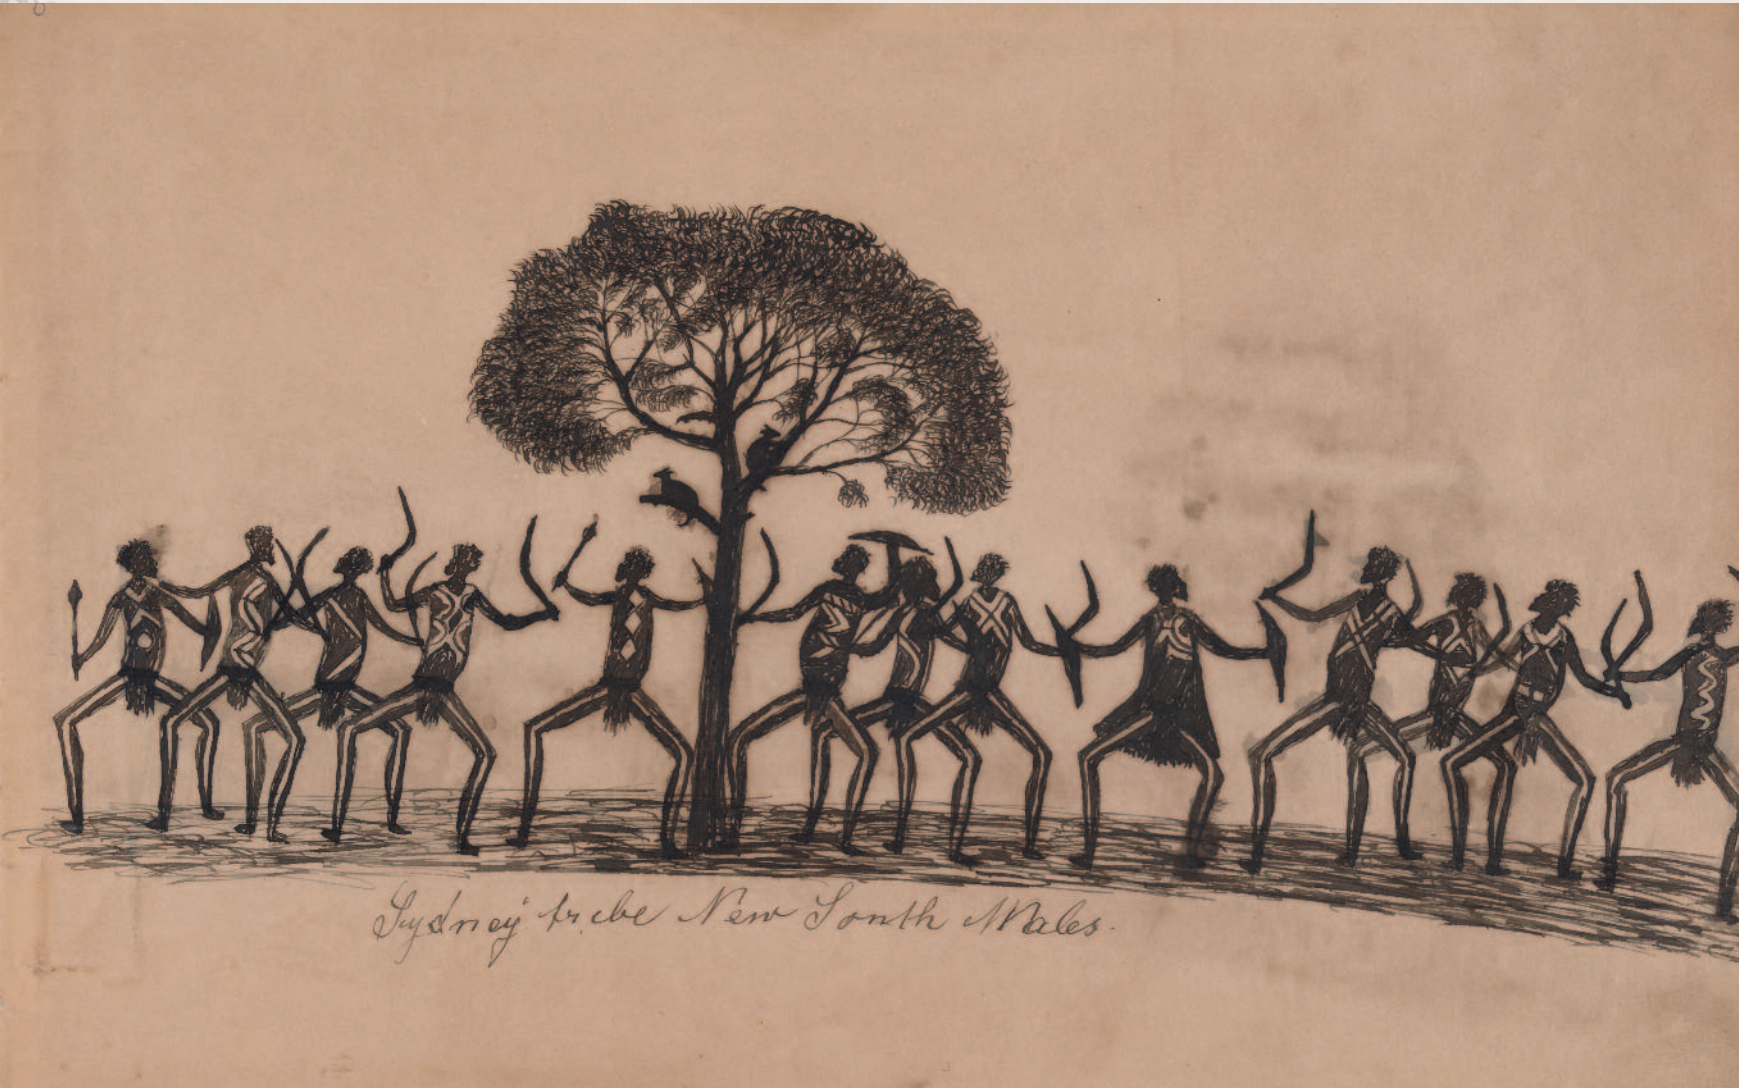 Sydney tribe New South Wales.